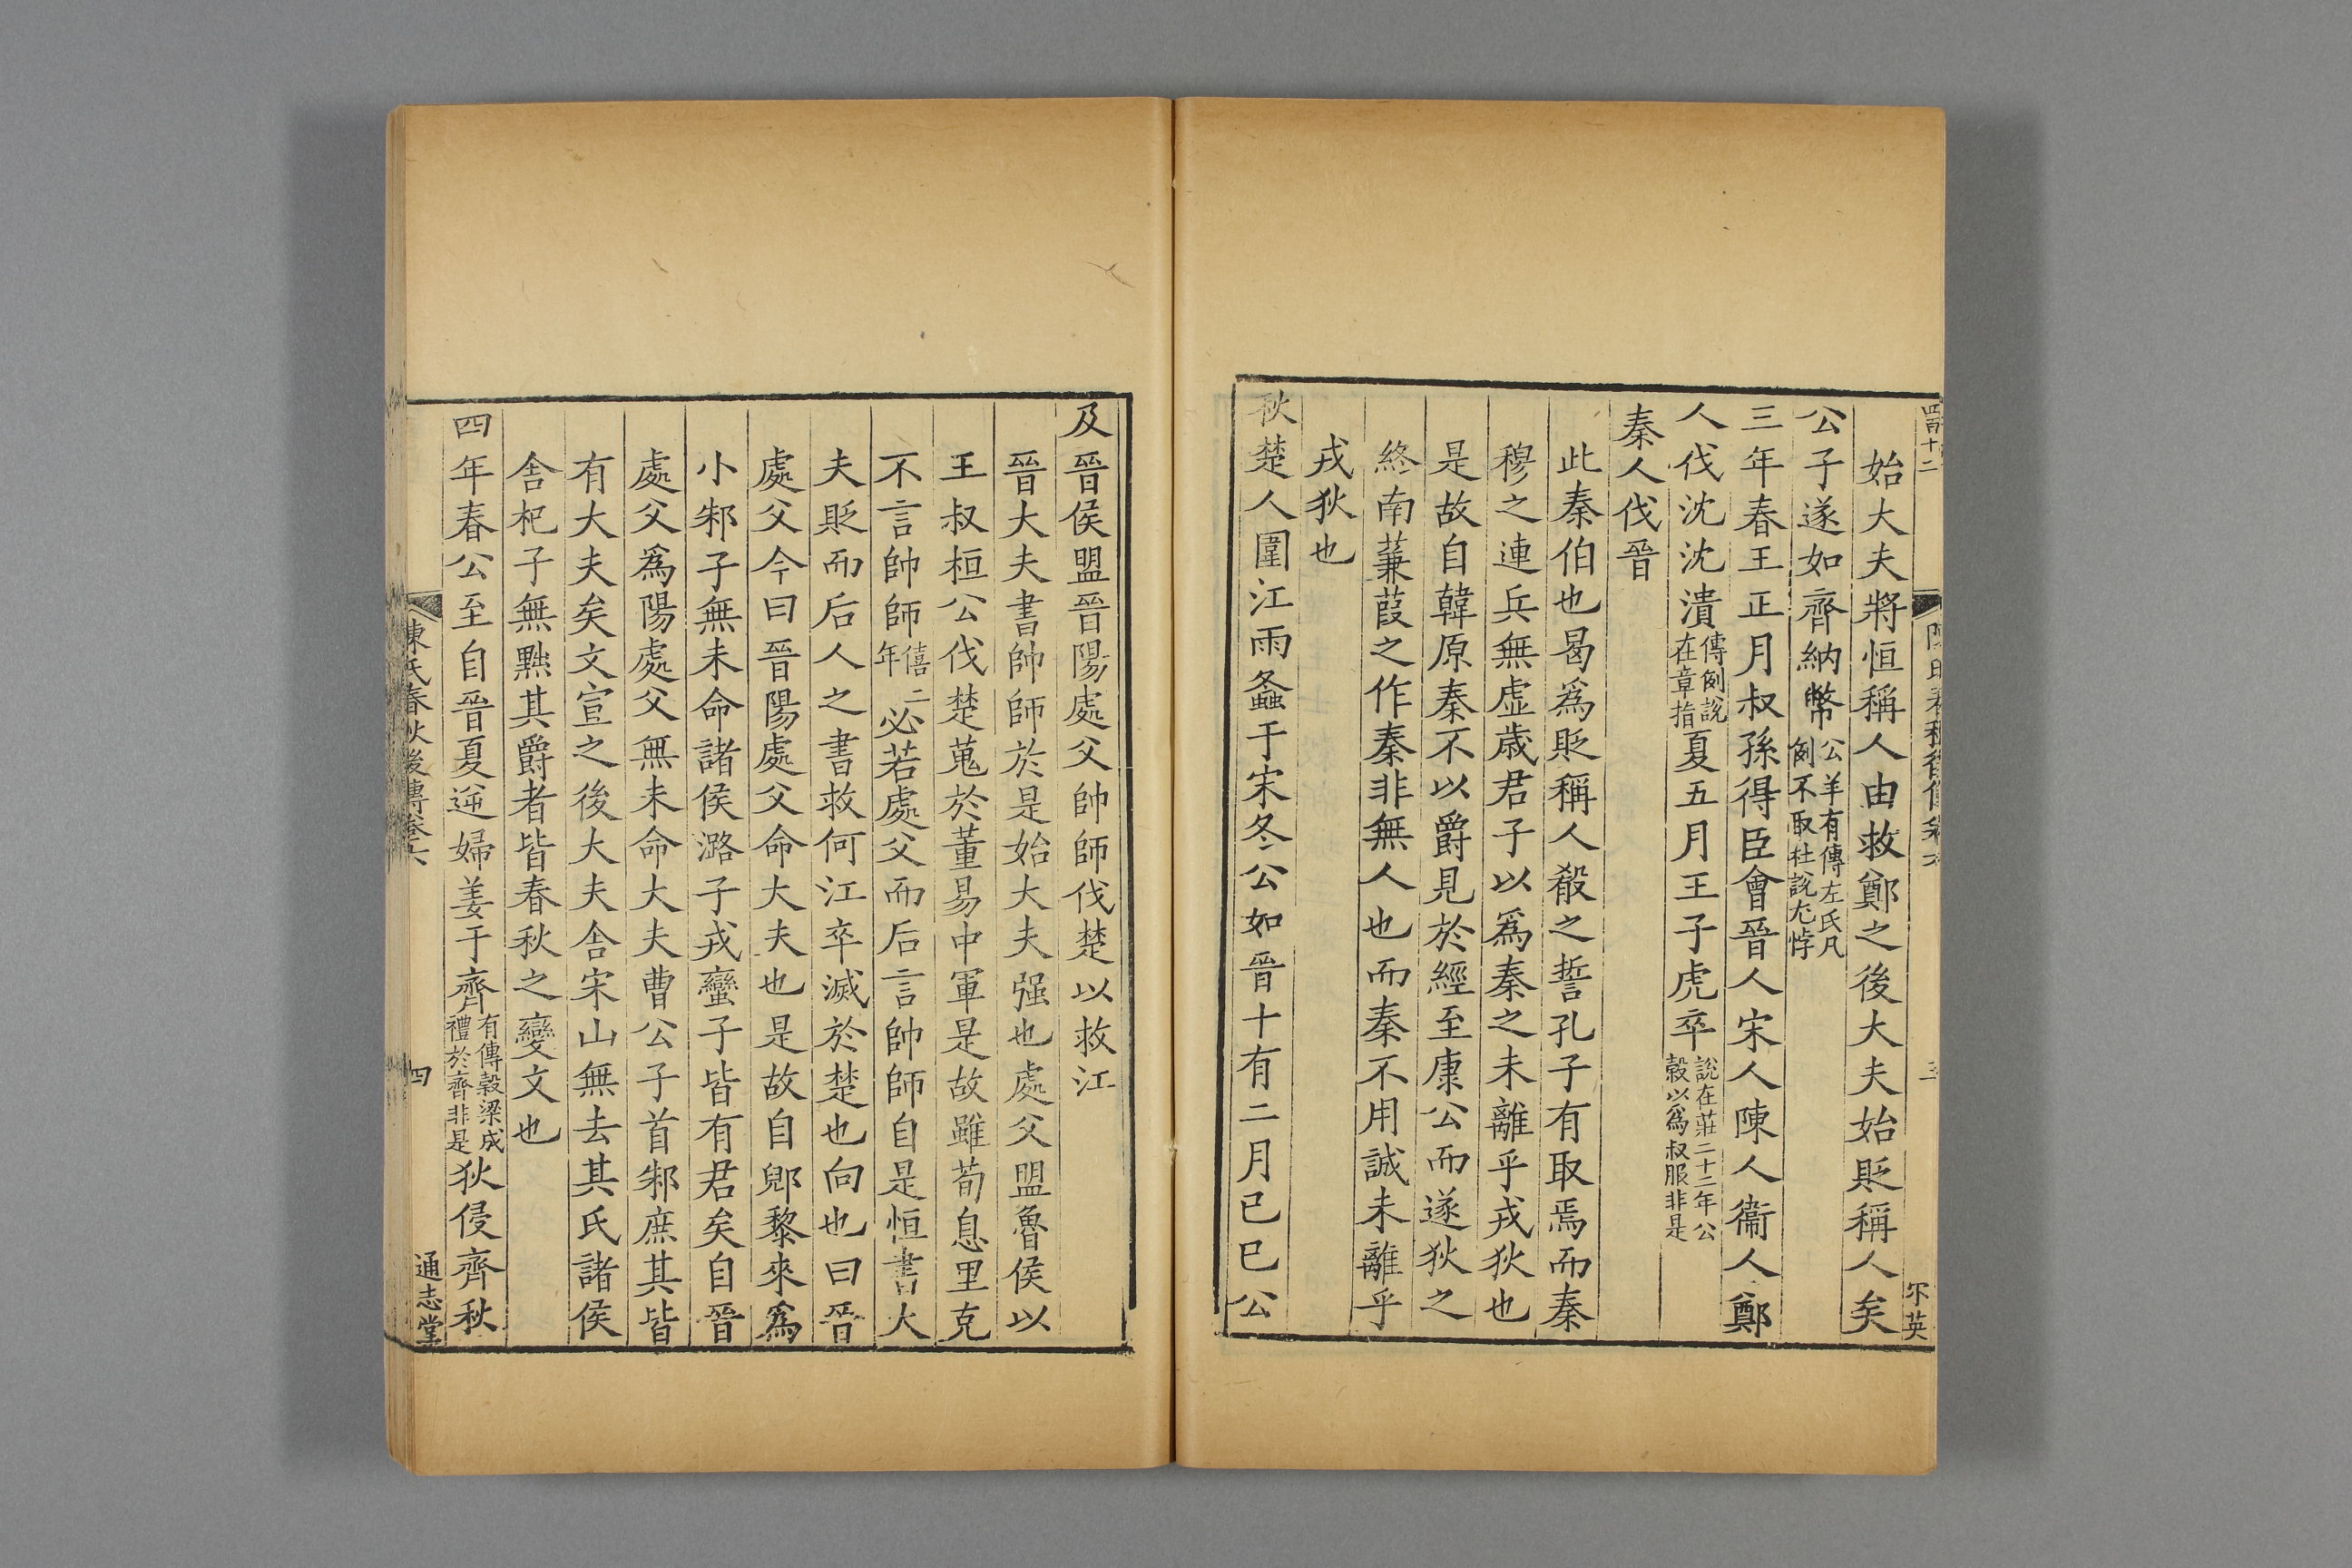 始大夫將恒稱人由救鄭之後大夫始貶稱人矣
公子遂如齊納幣公羊有傳左氏凡例不取杜說尤悖
三年春王正月叔孫得臣會晉人宋人陳人衞人鄭
人伐沈沈潰傳例說在章指夏五月王子虎卒說在莊二十三年公穀以爲叔服非是
秦人伐晉
此秦伯也曷爲貶稱人殽之誓孔子有取焉而秦
穆之連兵無虛歲君子以爲秦之未離乎戎狄也
是故自韓原秦不以爵見於經至康公而遂狄之
終南蒹葭之作秦非無人也而秦不用誠未離乎
戎狄也
秋楚人圍江雨螽于宋冬公如晉十有二月己巳公
及晉侯盟晉陽處父帥師伐楚以救江
晉大夫書帥師於是始大夫强也處父盟魯侯以
王叔桓公伐楚蒐於董易中軍是故雖荀息里克
不言帥師僖二年必若處父而后言帥師自是恒書大
夫貶而后人之書救何江卒滅於楚也向也曰晉
處父今曰晉陽處父命大夫也是故自郳黎來爲
小邾子無未命諸侯潞子戎蠻子皆有君矣自晉
處父爲陽處父無未命大夫曹公子首邾庶其皆
有大夫矣文宣之後大夫舍宋山無去其氏諸侯
舍杞子無黜其爵者皆春秋之變文也
四年春公至自晉夏逆婦姜于齊有傳穀梁成禮於齊非是狄侵齊秋
陳氏春秋後傳卷六
四
通志堂